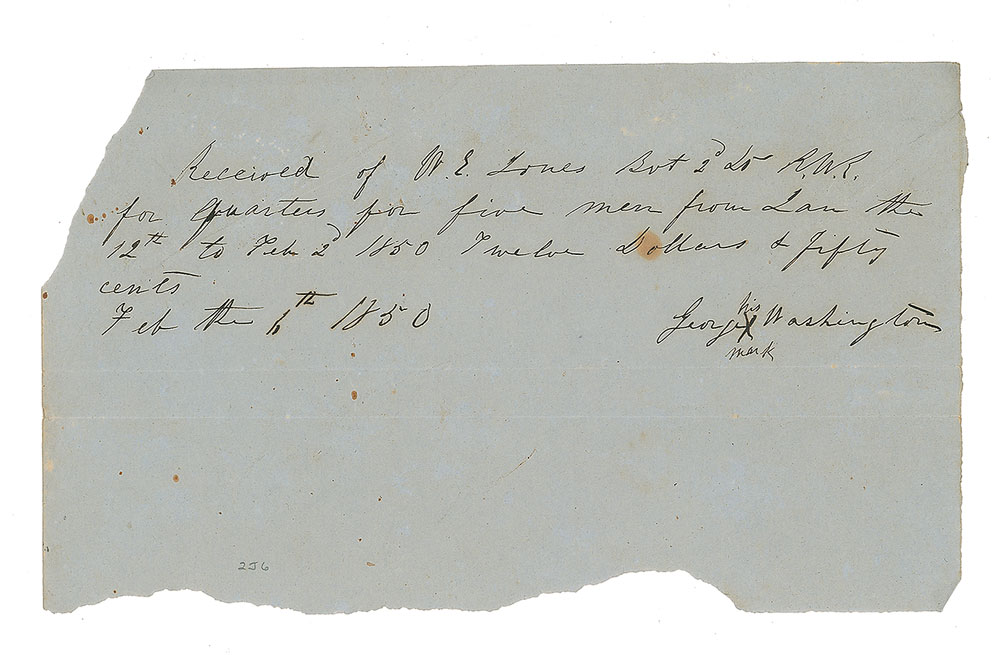 Received of W. E. Jones Bvt 2d Lt R.W.R.
for quarters for five men from Jan the
12th to Feb 2d 1850 Twelve Dollars & fifty
cents
Feb the 6th 1850
his
George X Washington
mark
2J6